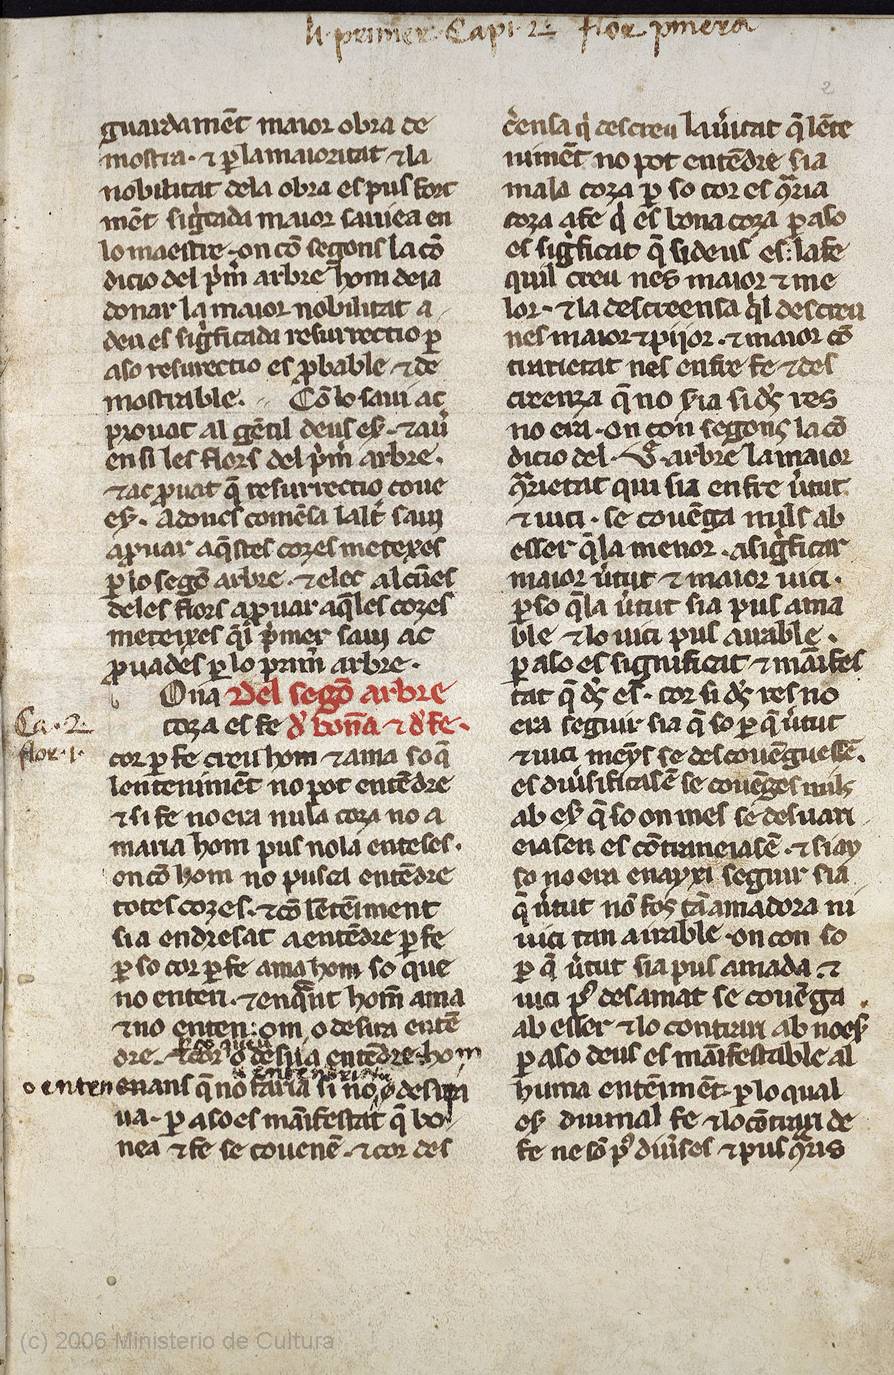 li primer Capi 2 flor primera
2
guardamēt maior obra de
mostra · ⁊ ꝑ la maioritat ⁊ la
nobilitat dela obra es pus fort
mēt sigᷤcada maior sauiea en
lo maestre · on cō segons la cō
dicio del p̄m̄ arbre hom deia
donar la maior nobilitat a
deu es sigᷤficada resurrectio ꝑ
aso resurectio es ꝓbable ⁊ de
mostrable. Cō lo saui ac
prouat al gētil deus eẜ · ⁊ aū
en si les flors del p̄m̄ arbre ·
⁊ ac ꝓuat q̄ resurrectio coue
eẜ · Adoncs comēsa lalt̄ saui
aꝓuar aq̄stes cozes metexes
ꝑ lo segō arbre · ⁊ elec alcūes
deles flors aꝓuar aq̄les cozes
meteixes q̄l p̄mer saui ac
ꝓuades ꝑ lo primˀ arbre ·
Ona Del segō arbre
coza es fe d̓ bonᷓa ⁊ d̓ fe ·
Ca · 2 ·
flor · 1 ·
cor ꝑ fe creu hom ⁊ ama so q̄
lenteniment no pot entēdre
⁊ si fe no era nula coza no a
maria hom pus nola enteses ·
on cō hom no pusca entēdre
totes cozes · ⁊ cō lētēiment
sia endresat a entēdre ꝑ fe
ꝑ so cor ꝑ fe ama hom so que
no enten · ⁊ enq̄nt hom̄ ama
⁊ no enten: om o desira entē
dre · ⁊ cor o desira entēdre · hom
o enten enans q̄ no faria si no o desira
ua · ꝑ aso es māifestat q̄ bo
nea ⁊ fe se couenē · ⁊ cor des
c̄ensa q̄ descreu la ūitat q̄ lēte
nimēt no pot entēdre sia
mala coza ꝑ so cor es q̄ria
coza a fe q̄ es bona coza ꝑ aso
es sigᷤficat q̄ si deus es: la fe
quil creu nes maior ⁊ me
lor · ⁊ la descreensa q̄l descreu
nes maior ⁊ pijor · ⁊ maior cō
trarietat nes enfre fe ⁊ des
crenza q̄ no ẜia si dˢ res
no era · on con segons la cō
dicio del · v · arbre la maior
q̄rietat qui sia enfre ūtut
⁊ uici · se couēga mils ab
esser q̄ la menor · a sigᷤficar
maior ūtut ⁊ maior uici ·
ꝑ so q̄ la ūtut sia pus ama
ble ⁊ lo uici pus airable ·
ꝑ aso es significat ⁊ māifes
tat q̄ dˢ es · cor si dˢ res no
era seguir sia q̄ so ꝑ q̄ ūtut
⁊ uici meyns se descouēguessē ·
es diūsificasē se couēges mils
ab eẜ q̄ so on mes se desuari
eiasen es cōtraneiasē · ⁊ si ay
so no era enayxi seguir sia
q̄ ūtut no fos tā amadora ni
uici tan airable · on con so
ꝑ q̄ ūtut sia pus amada ⁊
uici pˢ desamat se couēga
ab esser ⁊ lo contrari ab no eẜ
ꝑ aso deus es māifestable al
huma entēiment · ꝑ lo qual
eẜ diuinal fe ⁊ lo cōtrari de
fe ne sō pˢ diūses ⁊ pus q̄ris